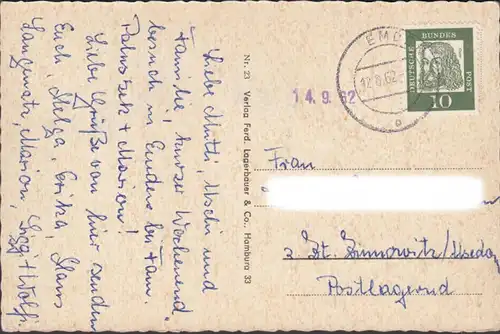 Liebe Mutti, Uschi und
Familie, kurzer Wochenend-
besuch in Emden bei Fam.
+ Marion!
Liebe Grüße von hier senden
Euch, Helga, Erika, Hans
Marion, Siggi + Wolf.
Nr. 23 Verlag Ferd. Lagerbauer & Co., Hamburg 33
EMDEN
12.9.62
14.9.62
DEUTSCHE
BUNDES
POST
10
Frau
z. Zt. Zinnowitz/Usedom
Postlagernd